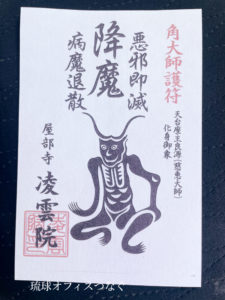 角大師護符
天台座主良源(慈恵大師)
化身御象
悪邪即滅
降魔
病魔退散
屋部寺
凌雲院
琉球オフィスつなぐ